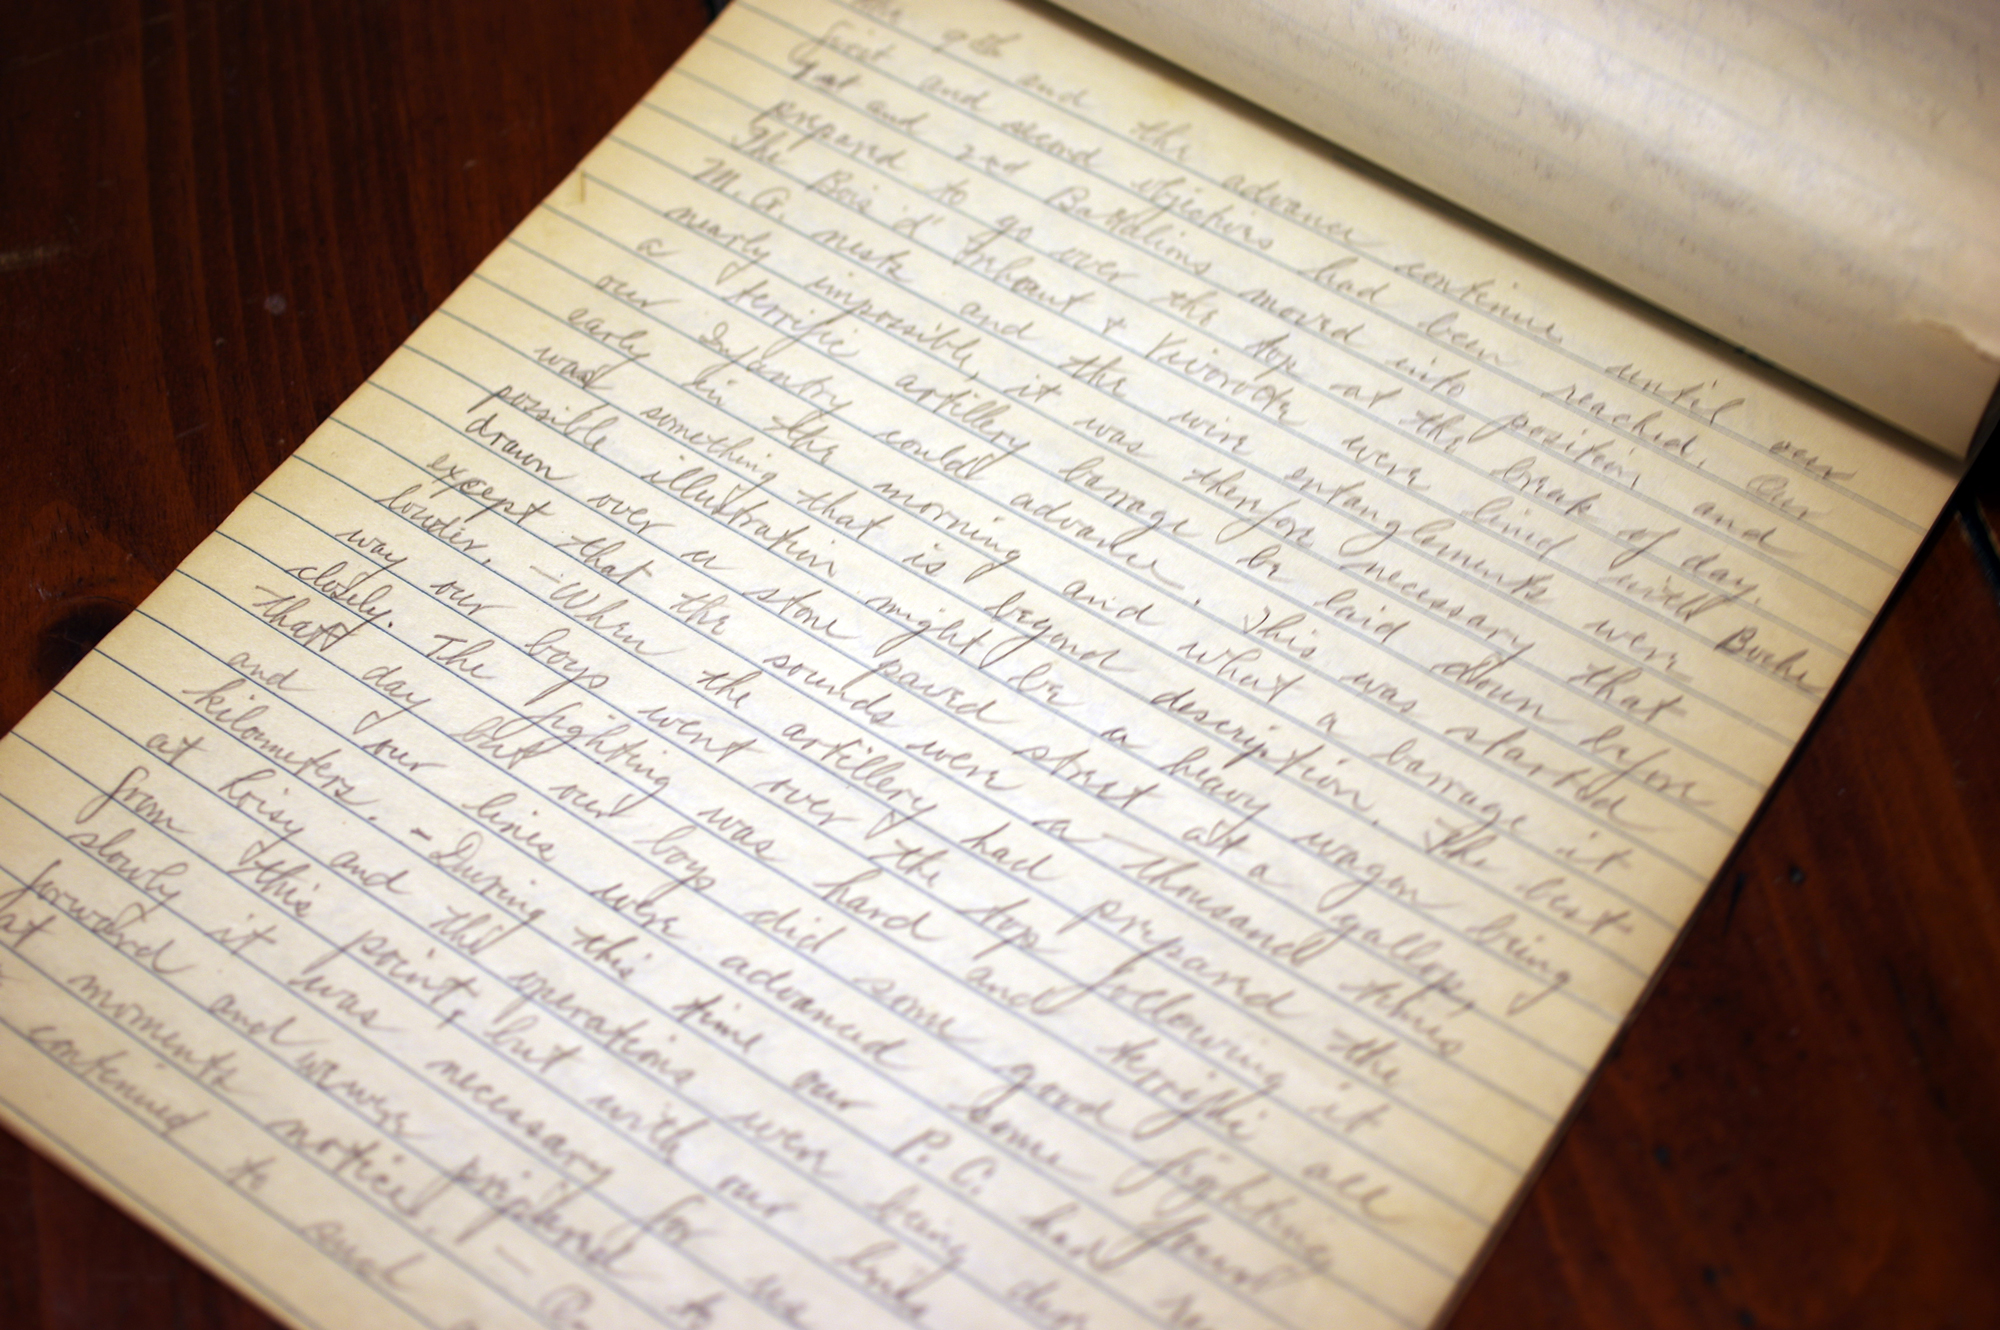 the 9th and the advance continue until our
first and second objectives had been reached. Our
1st and 2nd Battalions moved into position and
prepared to go over the top at the break of day.
The Bois d' & were lined with Boche
M. G. nests and the wire entanglements were
nearly impossible, it was therefore necessary that
a terrific artillery barrage be laid down before
our Infantry could advance. This was started
early in the morning and what a barrage it
was something that is beyond description. The best
possible illustration might be a heavy wagon being
drawn over a stone paved street at a gallop,
except that the sounds were a thousand times
louder. - When the artillery had prepared the
way our boys went over the top following it
closely. The fighting was hard and terrific all
that day but our boys did some good fighting
and our lines were advanced some four
kilometers. - During this time our P. C. had
at Noisy and the operations were being
from this point, but with our
slowly it was necessary for us
forward and were prepared to
at moments notice. -
continued to send